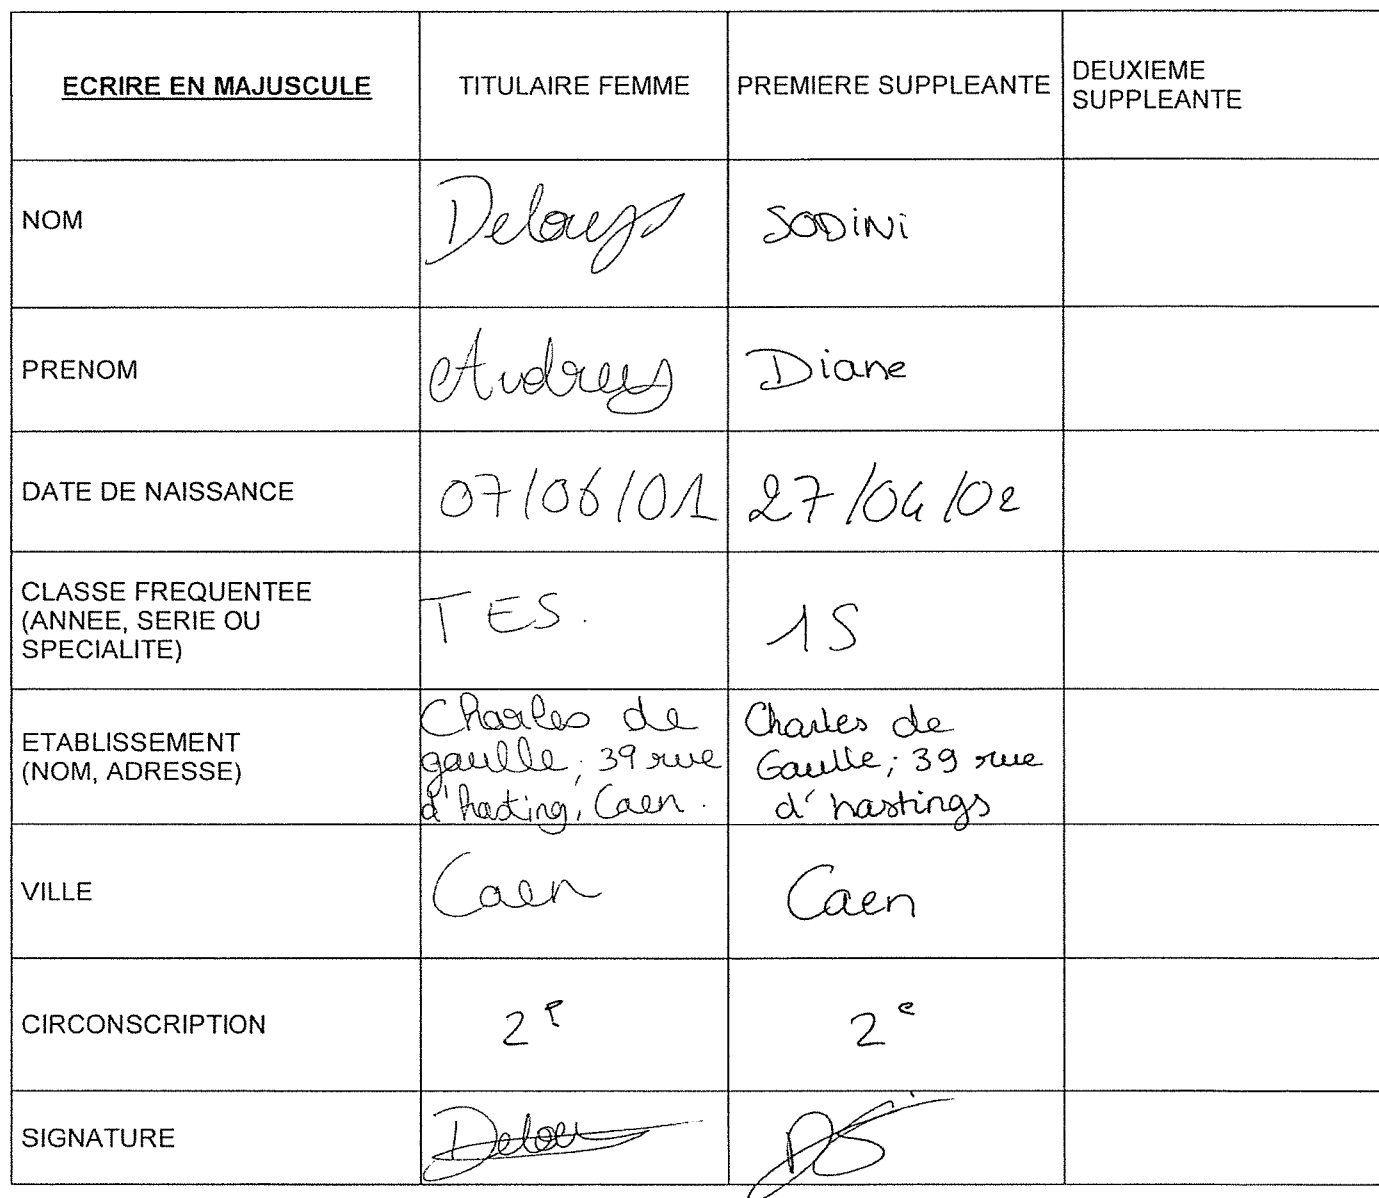 ECRIRE EN MAJUSCULE TITULAIRE FEMME PREMIERE SUPPLEANTE DEUXIEME
SUPPLEANTE
NOM SODINI
PRENOM Audrey Diane
DATE DE NAISSANCE 07/06/01 27/04/02
CLASSE FREQUENTEE
(ANNEE, SERIE OU
SPECIALITE) TES. 1S
ETABLISSEMENT
(NOM, ADRESSE)
Charles de
gaulle, 39 rue
d'hasting, Caen.
Charles de
Gaulle, 39 rue
d'hastings
VILLE Caen Caen
CIRCONSCRIPTION 2e 2e
SIGNATURE DS